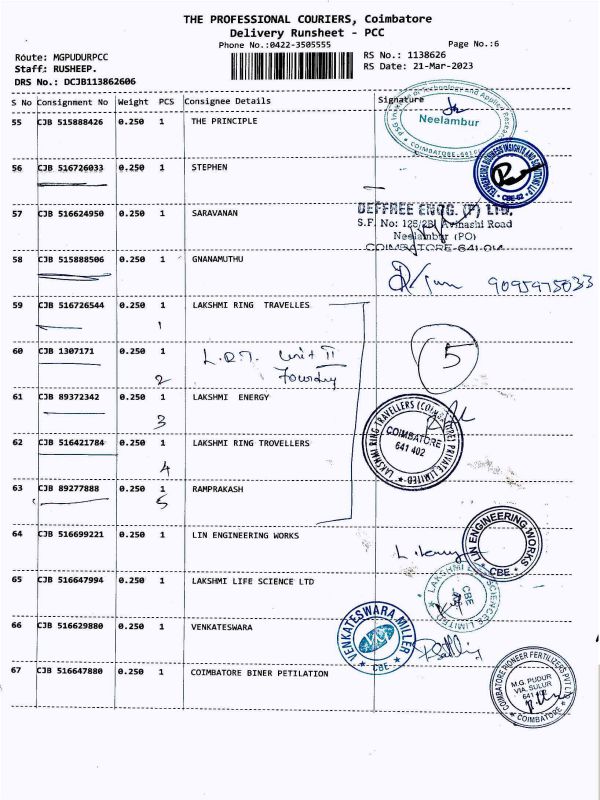 THE PROFESSIONAL COURIERS, Coimbatore
Delivery Runsheet - PCC
Phone No.:0422-3505555
Page No.:6
Route: MGPUDURPCC
RS No.: 1138626
Staff: RUSHEEP.
RS Date: 21-Mar-2023
DRS No.: DCJB113862606
S No Consignment No Weight PCS Consignee Details Signature
55 CJB 515888426 0.250 1 THE PRINCIPLE
Neelambur
56 CJB 516726033 0.250 1 STEPHEN
CBE-62
57 CJB 516624950 0.250 1 SARAVANAN
DEFFREE ENGG. (P) LTD.
S.F. No: 125/2B1 Avinashi Road
Neelambur (PO)
COIMBATORE-641-014
58 CJB 515888506 0.250 1 GNANAMUTHU
9095975033
59 CJB 516726544 0.250 1 LAKSHMI RING TRAVELLES
1
60 CJB 1307171 0.250 1 L.R.T. Unit II
2 Foundry
5
61 CJB 89372342 0.250 1 LAKSHMI ENERGY
3
LAKSHMI RING TRAVELLERS (COIMBATORE) PRIVATE LIMITED
COIMBATORE
641 402
62 CJB 516421784 0.250 1 LAKSHMI RING TROVELLERS
4
63 CJB 89277888 0.250 1 RAMPRAKASH
5
64 CJB 516699221 0.250 1 LIN ENGINEERING WORKS
LIN ENGINEERING WORKS
CBE
65 CJB 516647994 0.250 1 LAKSHMI LIFE SCIENCE LTD
LAKSHMI LIFE SCIENCES LIMITED
CBE
66 CJB 516629880 0.250 1 VENKATESWARA
VENKATESWARA MILLER
CBE
67 CJB 516647880 0.250 1 COIMBATORE BINER PETILATION
COIMBATORE PIONEER FERTILIZERS PVT LTD
M.G. PUDUR
VIA, SULUR
COIMBATORE